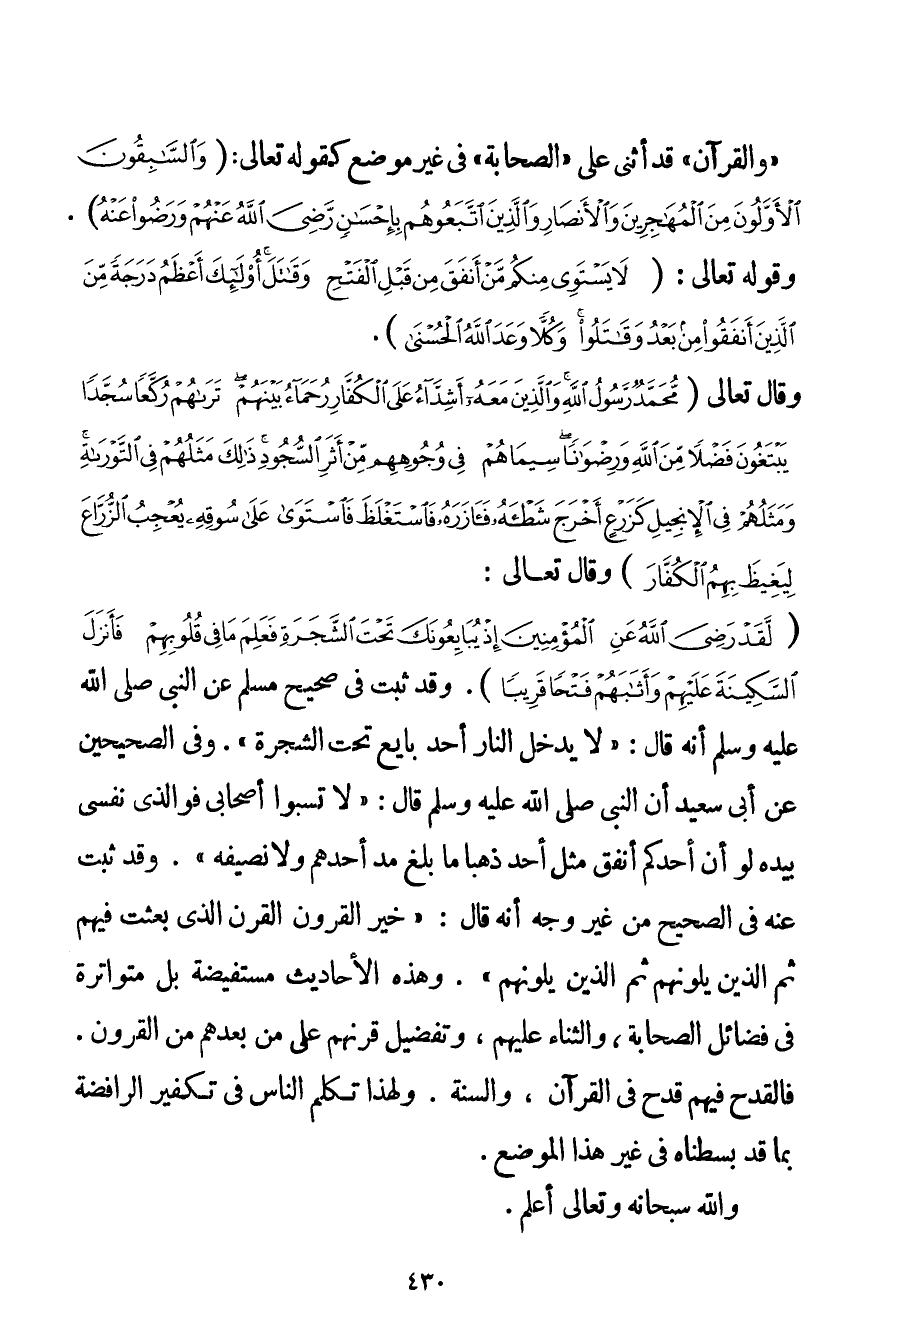 «والقرآن» قد أثنى على «الصحابة» فى غير موضع كقوله تعالى: ( وَٱلسَّٰبِقُونَ
ٱلْأَوَّلُونَ مِنَ ٱلْمُهَٰجِرِينَ وَٱلْأَنصَارِ وَٱلَّذِينَ ٱتَّبَعُوهُم بِإِحْسَٰنٍ رَّضِيَ ٱللَّهُ عَنْهُمْ وَرَضُوا۟ عَنْهُ ) .
وقوله تعالى : ( لَا يَسْتَوِى مِنكُم مَّنْ أَنفَقَ مِن قَبْلِ ٱلْفَتْحِ وَقَٰتَلَ ۚ أُو۟لَٰٓئِكَ أَعْظَمُ دَرَجَةً مِّنَ
ٱلَّذِينَ أَنفَقُوا۟ مِنۢ بَعْدُ وَقَٰتَلُوا۟ ۚ وَكُلًّا وَعَدَ ٱللَّهُ ٱلْحُسْنَىٰ ) .
وقال تعالى ( مُّحَمَّدٌ رَّسُولُ ٱللَّهِ ۚ وَٱلَّذِينَ مَعَهُۥٓ أَشِدَّآءُ عَلَى ٱلْكُفَّارِ رُحَمَآءُ بَيْنَهُمْ ۖ تَرَىٰهُمْ رُكَّعًا سُجَّدًا
يَبْتَغُونَ فَضْلًا مِّنَ ٱللَّهِ وَرِضْوَٰنًا ۖ سِيمَاهُمْ فِى وُجُوهِهِم مِّنْ أَثَرِ ٱلسُّجُودِ ۚ ذَٰلِكَ مَثَلُهُمْ فِى ٱلتَّوْرَىٰةِ ۚ
وَمَثَلُهُمْ فِى ٱلْإِنجِيلِ كَزَرْعٍ أَخْرَجَ شَطْـَٔهُۥ فَـَٔازَرَهُۥ فَٱسْتَغْلَظَ فَٱسْتَوَىٰ عَلَىٰ سُوقِهِۦ يُعْجِبُ ٱلزُّرَّاعَ
لِيَغِيظَ بِهِمُ ٱلْكُفَّارَ ) وقال تعـالى :
( لَّقَدْ رَضِىَ ٱللَّهُ عَنِ ٱلْمُؤْمِنِينَ إِذْ يُبَايِعُونَكَ تَحْتَ ٱلشَّجَرَةِ فَعَلِمَ مَا فِى قُلُوبِهِمْ فَأَنزَلَ
ٱلسَّكِينَةَ عَلَيْهِمْ وَأَثَٰبَهُمْ فَتْحًا قَرِيبًا ) . وقد ثبت فى صحيح مسلم عن النبى صلى الله
عليه وسلم أنه قال : « لا يدخل النار أحد بايع تحت الشجرة » . وفى الصحيحين
عن أبى سعيد أن النبى صلى الله عليه وسلم قال : « لا تسبوا أصحابى فوالذى نفسى
بيده لو أن أحدكم أنفق مثل أحد ذهبا ما بلغ مد أحدهم ولا نصيفه » . وقد ثبت
عنه فى الصحيح من غير وجه أنه قال : « خير القرون القرن الذى بعثت فيهم
ثم الذين يلونهم ثم الذين يلونهم » . وهذه الأحاديث مستفيضة بل متواترة
فى فضائل الصحابة ، والثناء عليهم ، وتفضيل قرنهم على من بعدهم من القرون .
فالقدح فيهم قدح فى القرآن ، والسنة . ولهذا تـكلم الناس فى تـكفير الرافضة
بما قد بسطناه فى غير هذا الموضع .
والله سبحانه وتعالى أعلم .
٤٣٠